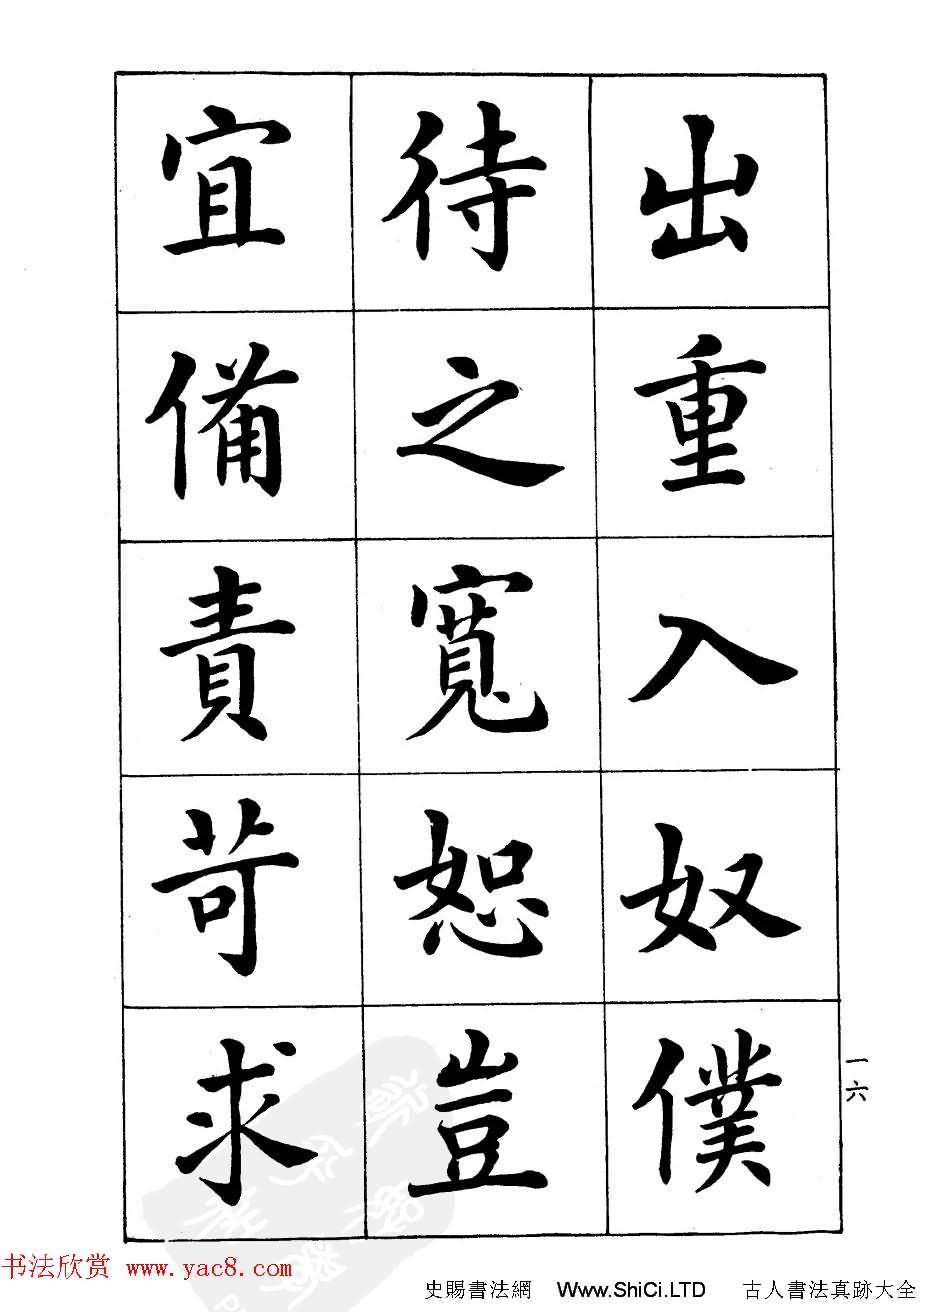 出重入奴僕
待之寬恕豈
宜備責苛求
一六
书法欣赏 www.yac8.com
史賜書法網 Www.ShiCi.LTD 古人書法真跡大全